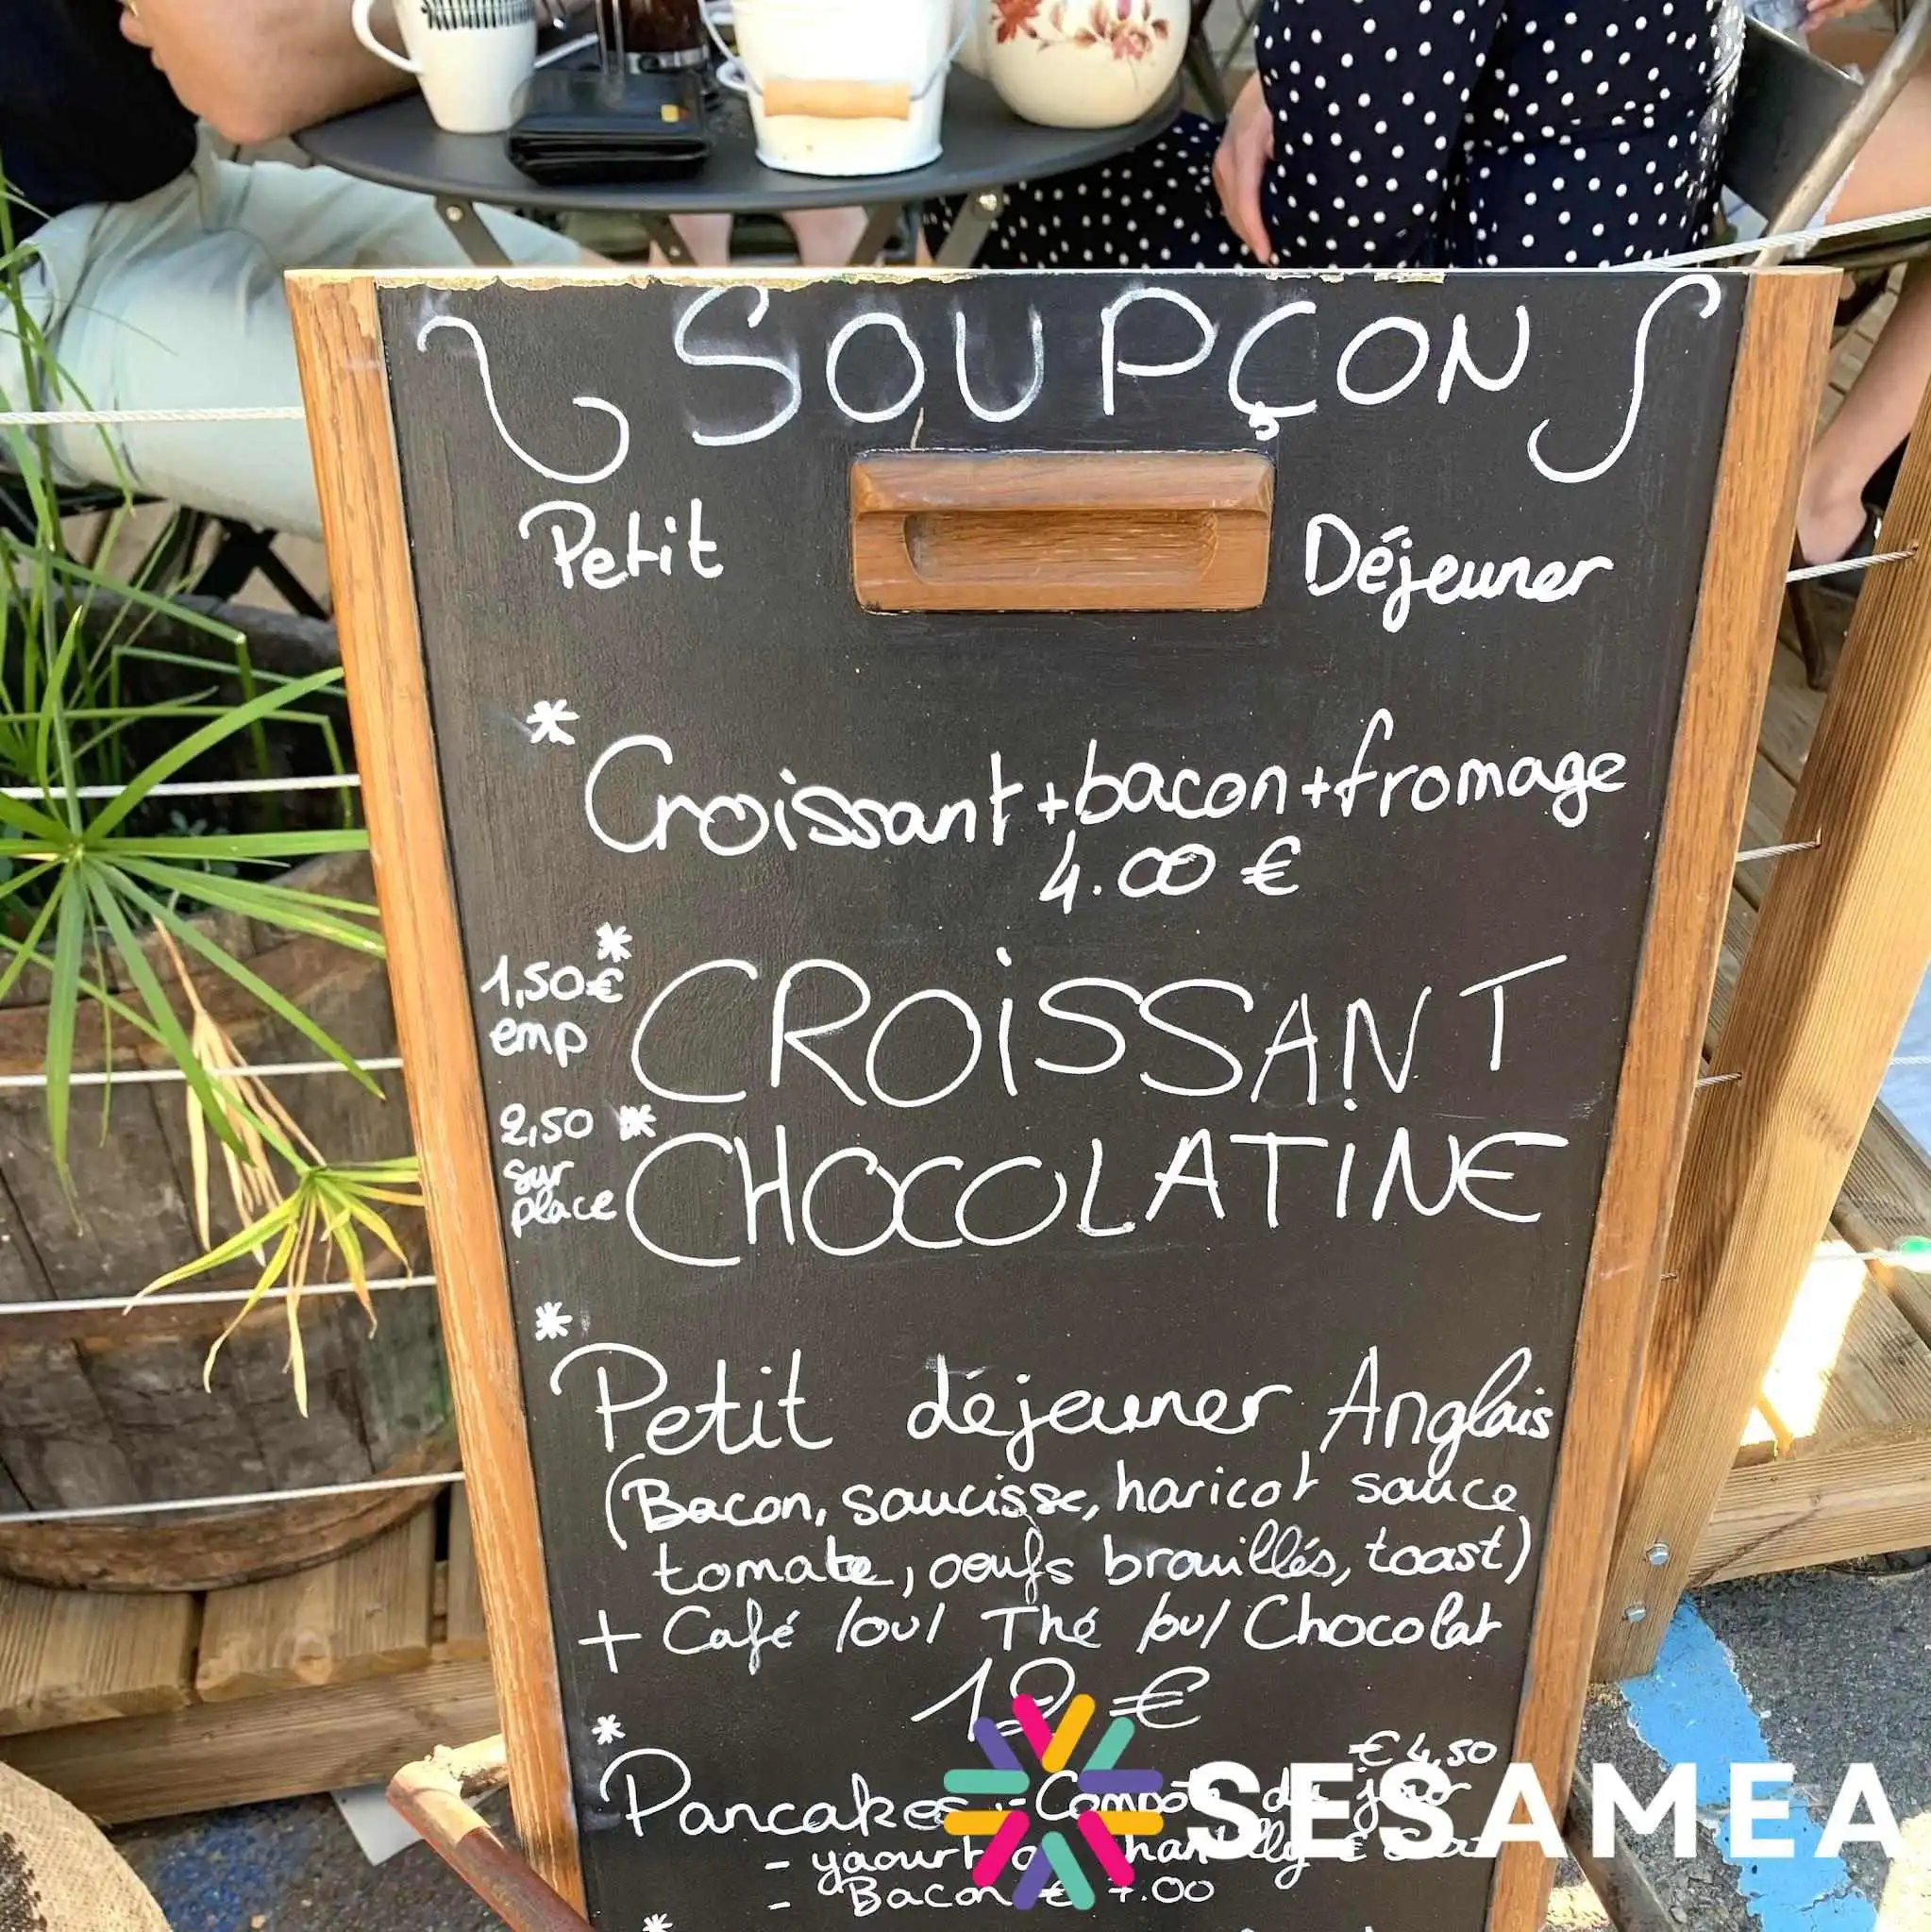 SOUPÇON
Petit Déjeuner
* Croissant + bacon + fromage
4.00 €
1,50€ emp * CROISSANT
2,50 sur place * CHOCOLATINE
*
Petit déjeuner Anglais
(Bacon, saucisse, haricot sauce
tomate, oeufs brouillés, toast)
+ Café /ou/ Thé /ou/ Chocolat
€
€ 4,50
* Pancakes jour
- yaourt
- Bacon
*
SESAMEA